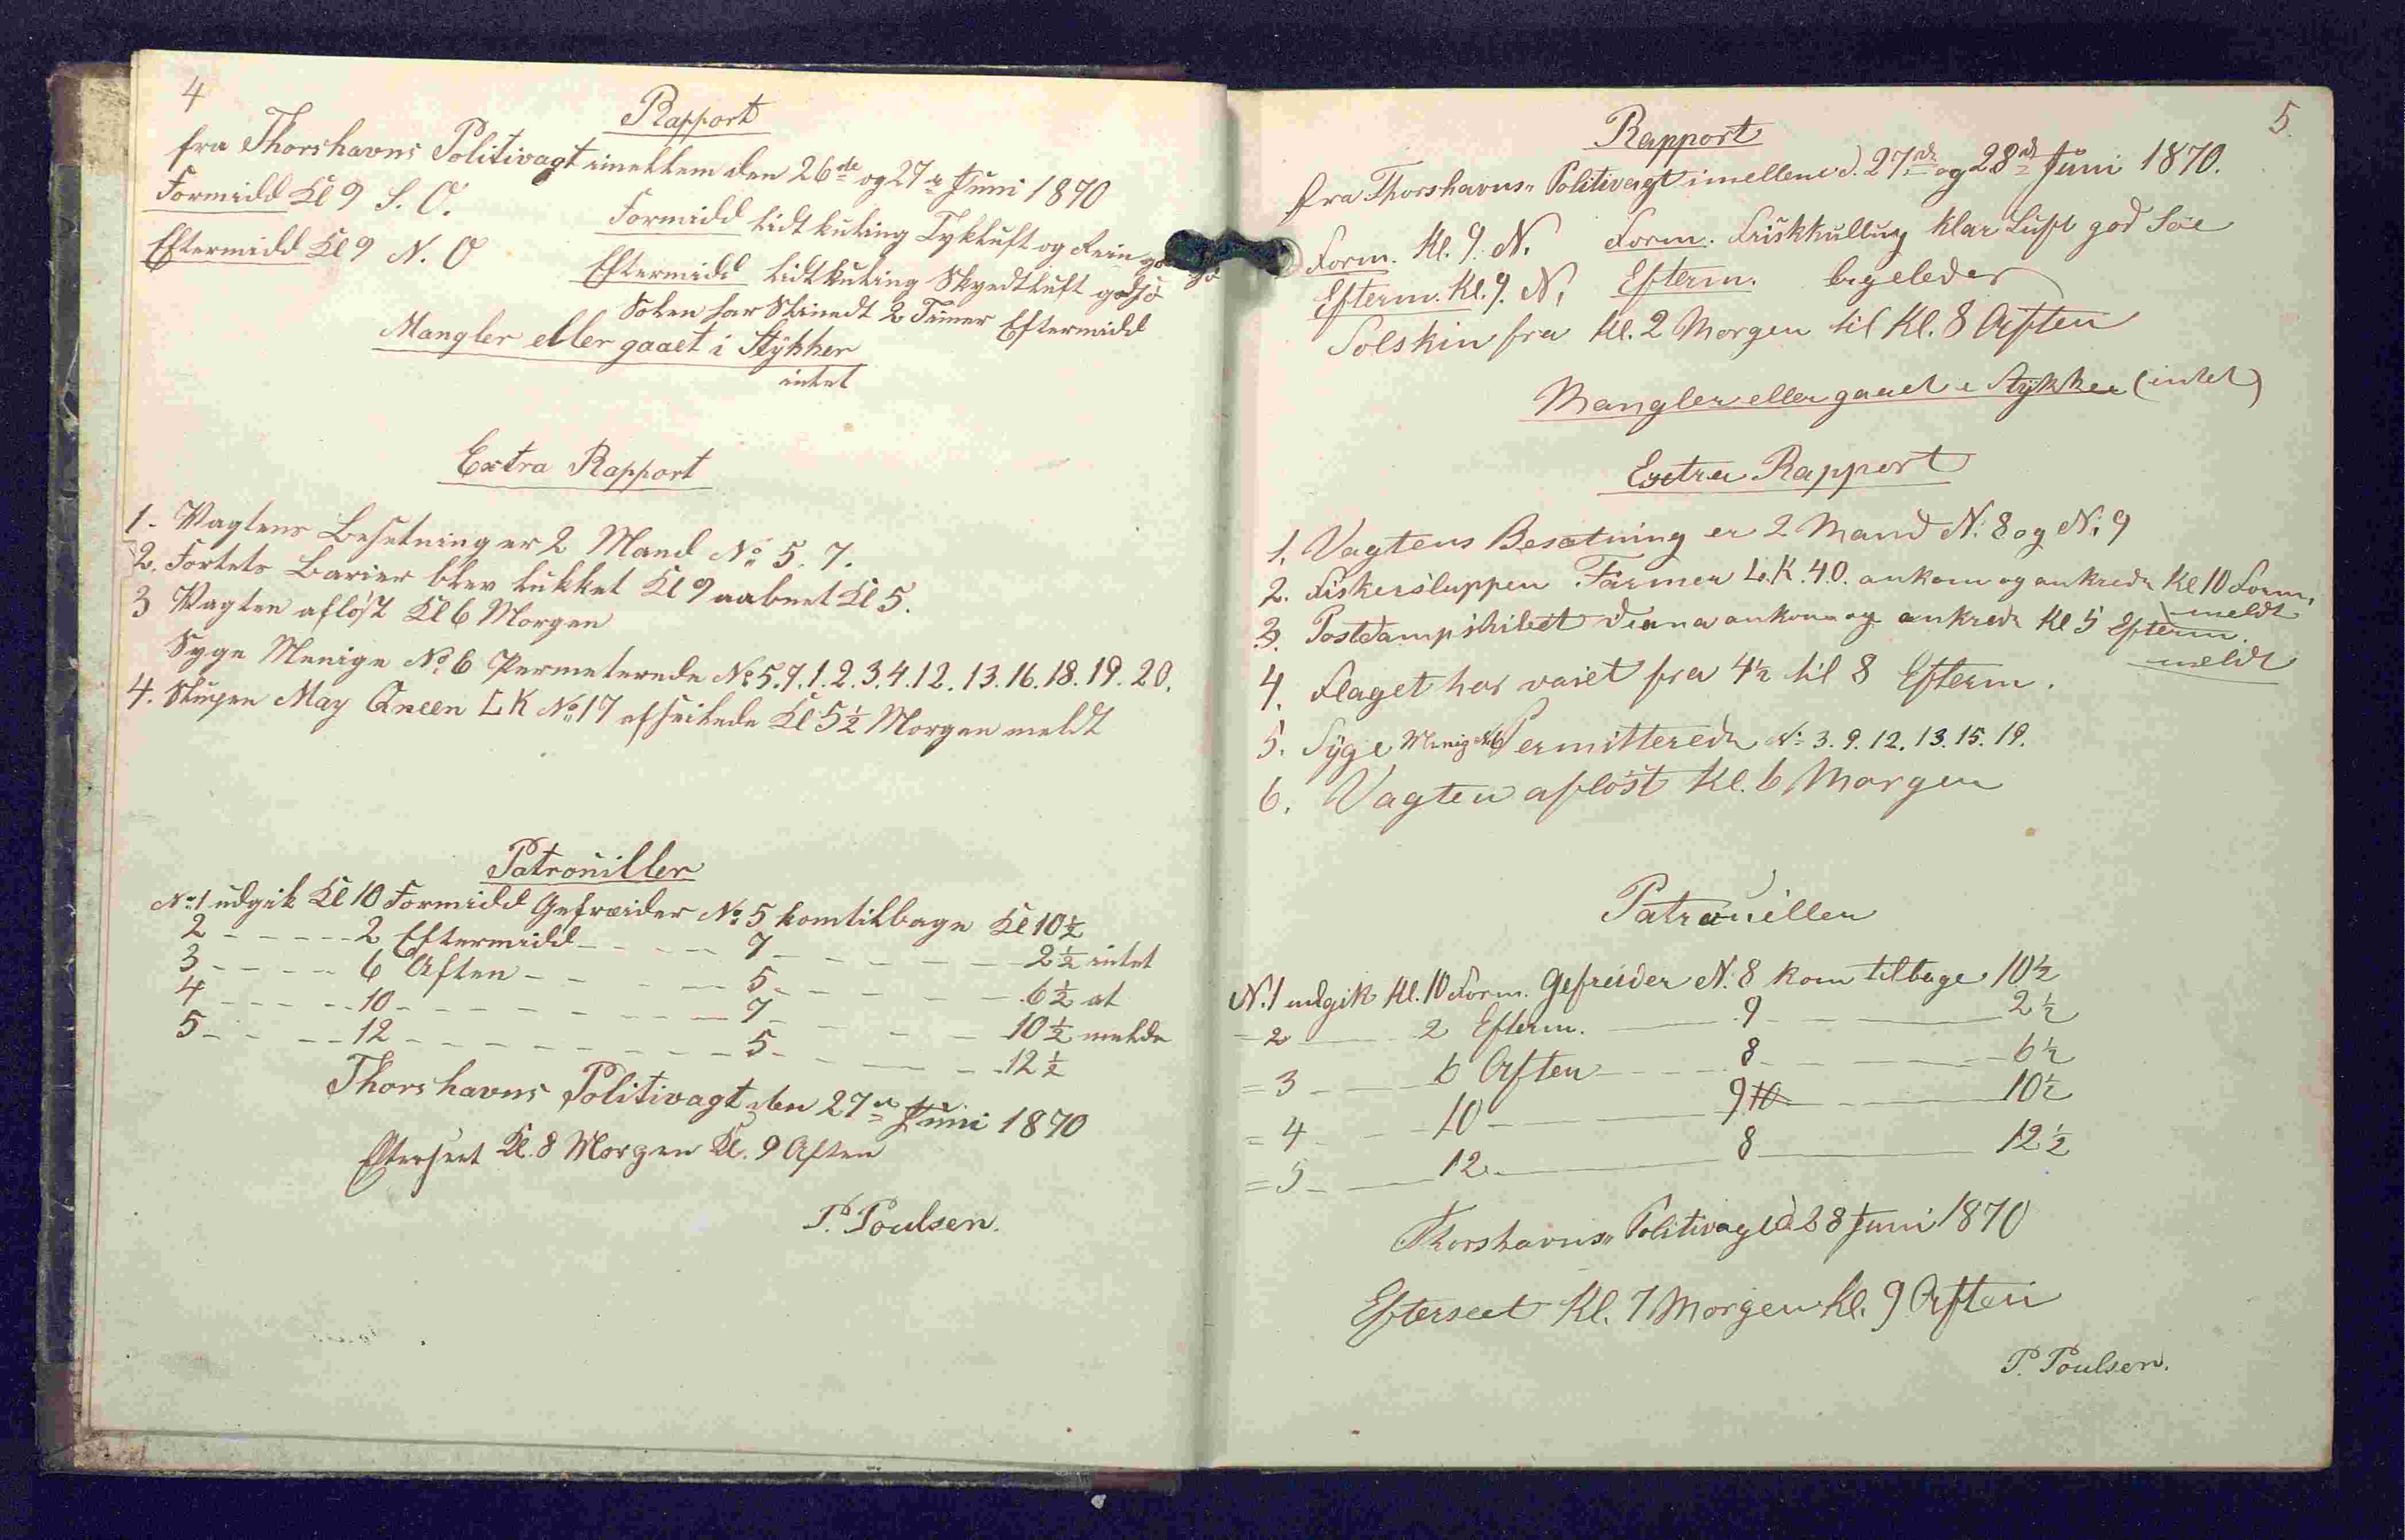 4
Rapport
fra Thorshavns Politivagt imellem den 26de og 27de Juni 1870
Formidd Kl 9 S. O.
Formidd lidt kuling Tykluft og Rein god Sö
Eftermidd Kl 9 N. O
Eftermidd lidt kuling Skyedtluft god Sö
Solen har Skinedt 2 Timer Eftermidd
Mangler eller gaaet i Stÿkker
intet
Extra Rapport
1- Vagtens Besetning er 2 Mand No 5. 7.
2. Fortets Barier blev lukket Kl 9 aabnet Kl 5.
3 Vagten afløst Kl 6 Morgen
Syge Menige No 6 Permeterede No 5.7.1.2.3.4.12.13.16.18.19.20.
4. Slupen May Queen LK No 17 afseilede Kl 5½ Morgen meldt
Patrouiller
No 1 udgik Kl 10 Formidd Gefreider No 5 kom tilbage Kl 10½
2 - - - - - 2 Eftermidd - - - - - 7 - - - - - - 2½ intet
3 - - - - 6 Aften - - - - - 5 - - - - - - 6½ at
4 - - - - - 10 - - - - - - - - - 7 - - - - 10½ melde
5 - - - - 12 - - - - - - - - - 5 - - - - - 12½
Thorshavns Politivagt den 27de Juni 1870
Efterseet Kl. 8 Morgen Kl. 9 Aften
P. Poulsen.
5.
Rapport
fra Thorshavns Politivagt imellem d. 27de og 28de Juni 1870.
Form. Kl. 9. N. Form. Friskkulling klar Luft god Söe
Efterm. Kl. 9. N. Efterm. ligeledes
Solskin fra Kl. 2 Morgen til Kl. 8 Aften
Mangler eller gaaet i Stÿkker (intet)
Extra Rapport
1. Vagtens Besætning er 2 Mand N. 8 og N. 9
2. Fiskersluppen Farmer L. K. 40. ankom og ankrede Kl 10 Form.
meldt
3. Postdampskibet Diana ankom og ankrede Kl 5 Efterm.
meldt
4. Flaget har vaiet fra 4½ til 8 Efterm.
5. Syge Menig N6 Permitterede No 3. 9. 12. 13. 15. 19.
6. Vagten aflöst Kl. 6 Morgen
Patrouiller
N. 1 udgik Kl. 10 Form. Gefreider N. 8 kom tilbage 10½
= 2 - - - 2 Efterm. - - - 9 - - - 2½
= 3 - - - 6 Aften - - - 8 - - - 6½
= 4 - - - 10 - - - 9 10 - - - 10½
= 5 - - - 12 - - - 8 - - - 12½
Thorshavns Politivagt d 28 Juni 1870
Efterseet Kl. 7 Morgen Kl. 9 Aften
P. Poulsen.